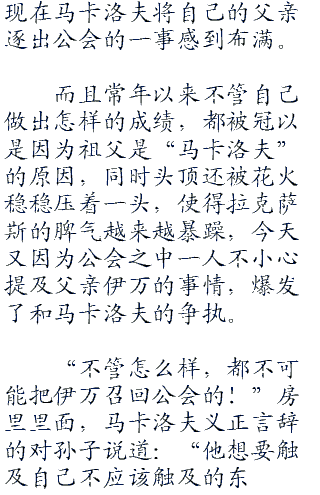 现在马卡洛夫将自己的父亲
逐出公会的一事感到布满。
而且常年以来不管自己
做出怎样的成绩，都被冠以
是因为祖父是“马卡洛夫”
的原因，同时头顶还被花火
稳稳压着一头，使得拉克萨
斯的脾气越来越暴躁，今天
又因为公会之中一人不小心
提及父亲伊万的事情，爆发
了和马卡洛夫的争执。
“不管怎么样，都不可
能把伊万召回公会的！”房
里里面，马卡洛夫义正言辞
的对孙子说道：“他想要触
及自己不应该触及的东